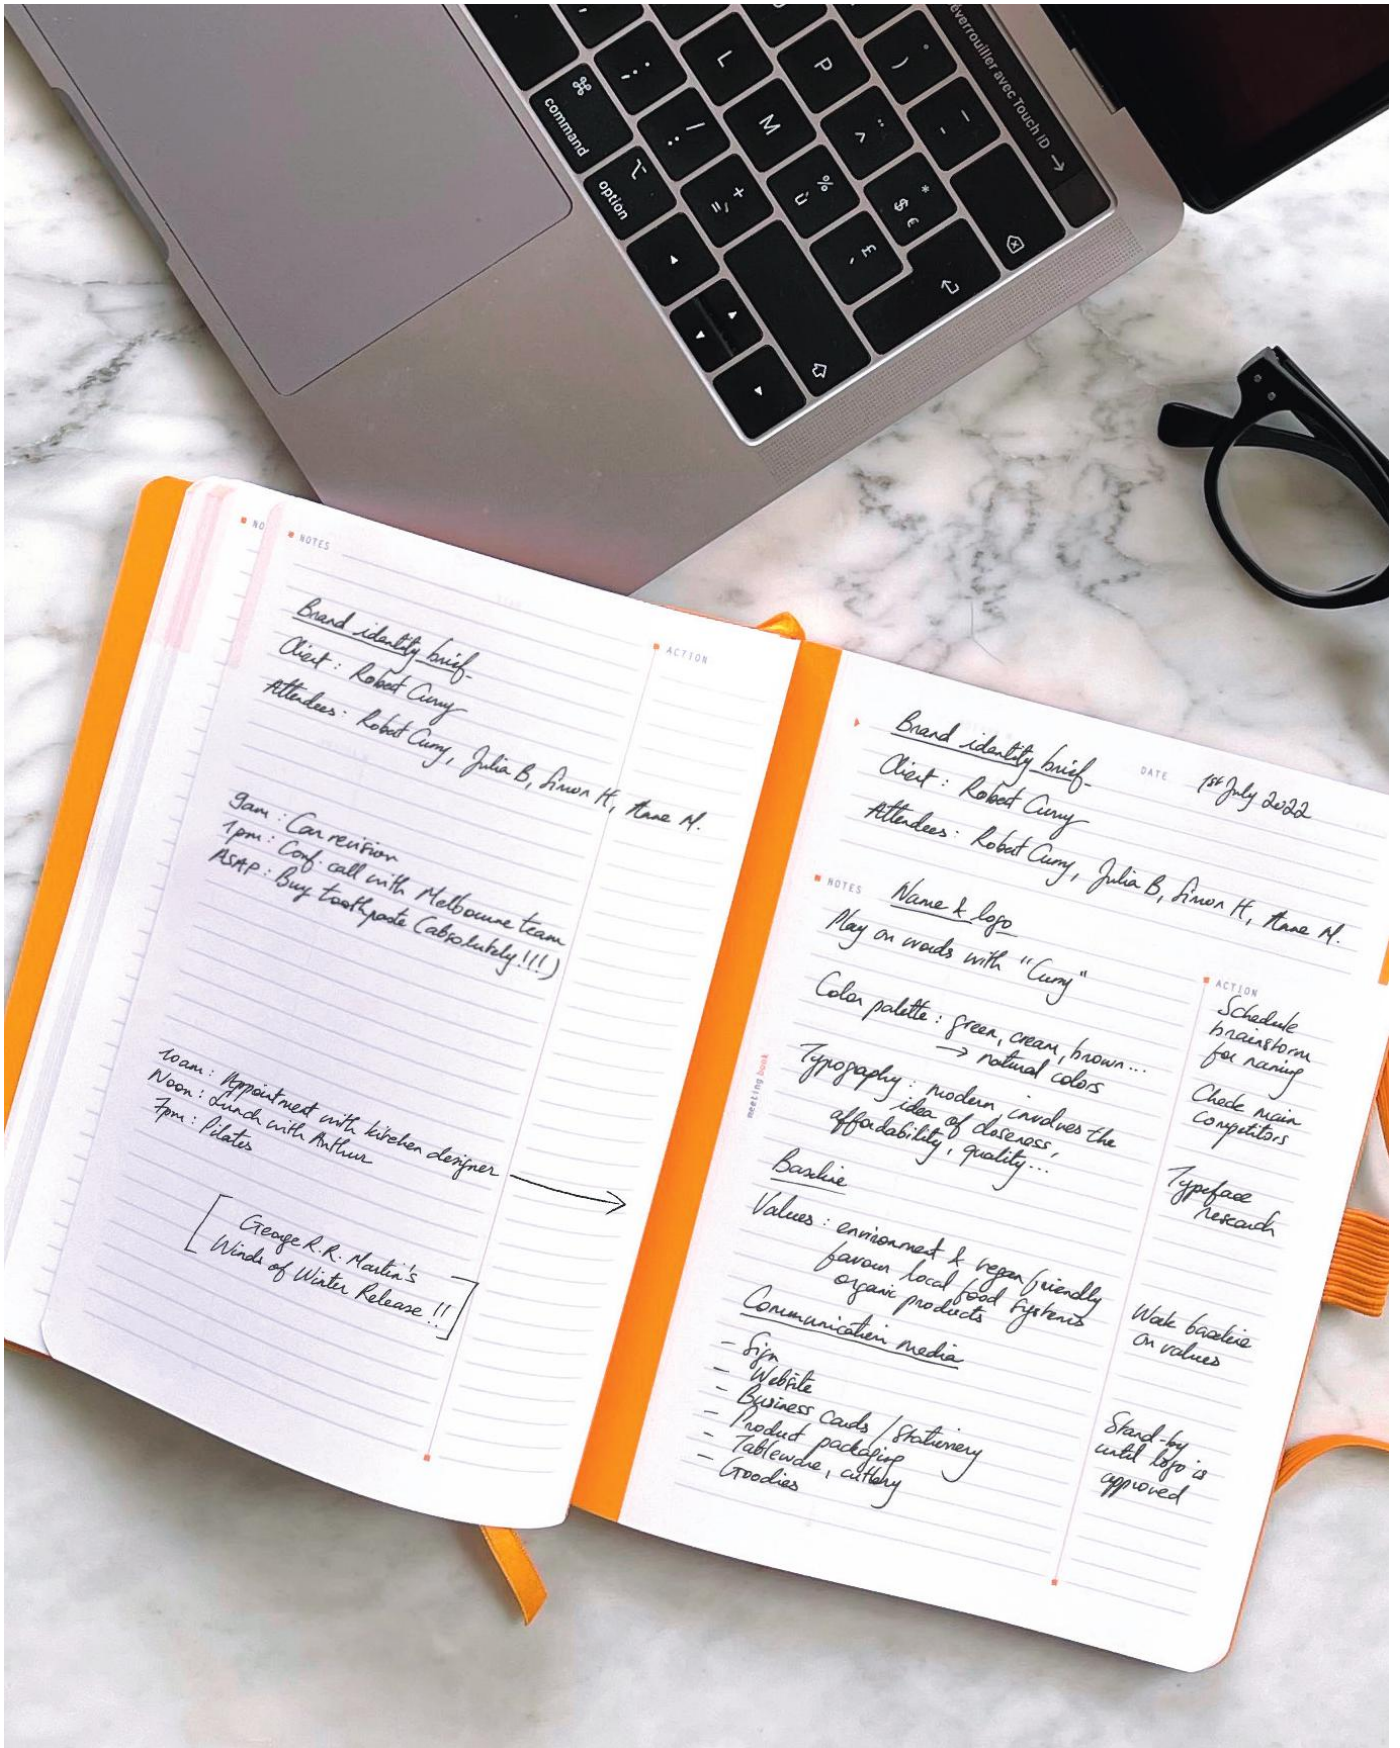 déverrouiller avec Touch ID →
L
P
)
°
; .
⌘
command
: /
M
^ ¨
- _
⌥
option
= +
ù %
$ * €
` £
NO
NOTES
ACTION
Brand identity brief
Client : Robert Curry
Attendees : Robert Curry, Julia B, Simon H, Anne M.
9am : Car revision
1pm : Conf. call with Melbourne team
ASAP : Buy toothpaste (absolutely !!!)
10am : Appointment with kitchen designer
Noon : Lunch with Arthur
7pm : Pilates
George R.R. Martin's
Winds of Winter Release !!
Brand identity brief
DATE 1st July 2022
Client : Robert Curry
Attendees : Robert Curry, Julia B, Simon H, Anne M.
NOTES
Name & logo
Play on words with "Curry"
Color palette : green, cream, brown...
→ natural colors
Typography : modern, involves the
idea of closeness,
affordability, quality...
Baseline
Values : environment & vegan friendly
favour local food systems
organic products
Communication media
- Sign
- Website
- Business cards / stationery
- Product packaging
- Tableware, cutlery
- Goodies
ACTION
Schedule
brainstorm
for naming
Check main
competitors
Typeface
research
Work baseline
on values
Stand-by
until logo is
approved
meeting book